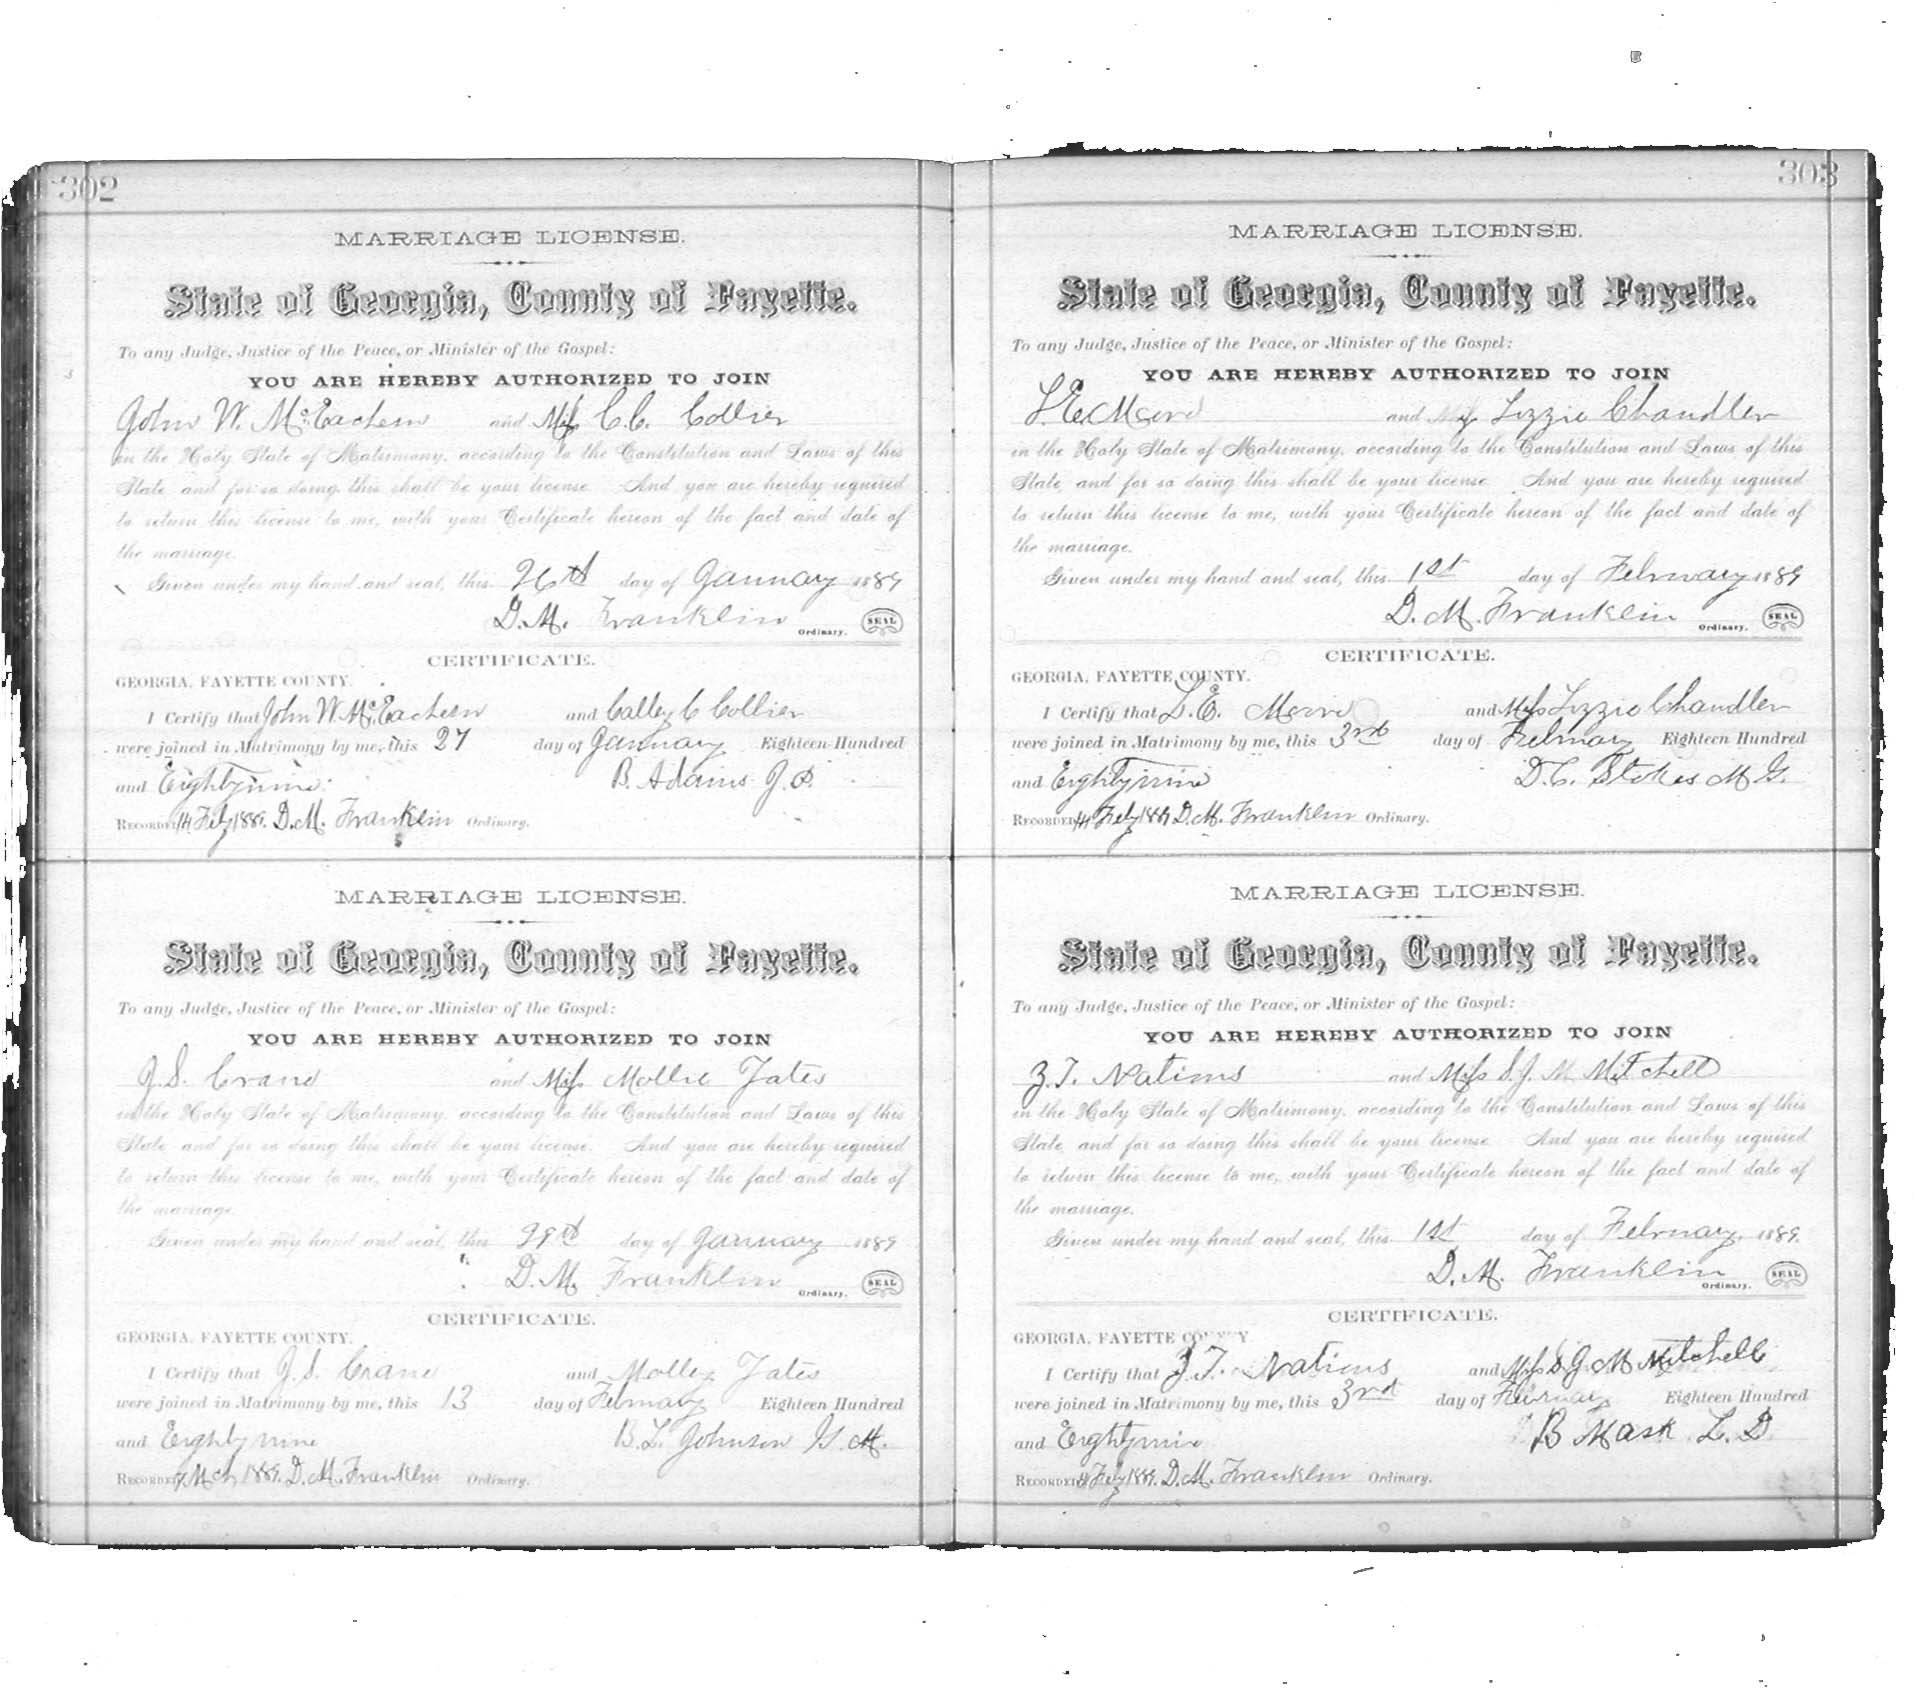 302
MARRIAGE LICENSE.
State of Georgia, County of Fayette.
To any Judge, Justice of the Peace, or Minister of the Gospel:
YOU ARE HEREBY AUTHORIZED TO JOIN
John W. McEachern and Miss C.C. Collier
in the Holy State of Matrimony, according to the Constitution and Laws of this
State, and for so doing this shall be your license. And you are hereby required
to return this license to me, with your Certificate hereon of the fact and date of
the marriage.
Given under my hand and seal, this 26th day of January 1889
D.M. Franklin Ordinary. SEAL
CERTIFICATE.
GEORGIA, FAYETTE COUNTY.
I Certify that John W. McEachern and Calley C Collier
were joined in Matrimony by me, this 27 day of January Eighteen Hundred
and Eighty nine. B. Adams J.P.
RECORDED 14 Feby 1889. D.M. Franklin Ordinary.
MARRIAGE LICENSE.
State of Georgia, County of Fayette.
To any Judge, Justice of the Peace, or Minister of the Gospel:
YOU ARE HEREBY AUTHORIZED TO JOIN
J.S. Crane and Miss Mollie Yates
in the Holy State of Matrimony, according to the Constitution and Laws of this
State and for so doing this shall be your license. And you are hereby required
to return this license to me, with your Certificate hereon of the fact and date of
the marriage.
Given under my hand and seal, this 29th day of January 1889
D.M. Franklin Ordinary. SEAL
CERTIFICATE.
GEORGIA, FAYETTE COUNTY.
I Certify that J.S. Crane and Molley Yates
were joined in Matrimony by me, this 13 day of February Eighteen Hundred
and Eighty nine B.L. Johnson
RECORDED 7 Mch 1889. D.M. Franklin Ordinary.
303
MARRIAGE LICENSE.
State of Georgia, County of Fayette.
To any Judge, Justice of the Peace, or Minister of the Gospel:
YOU ARE HEREBY AUTHORIZED TO JOIN
L.E. and Miss Lizzie Chandler
in the Holy State of Matrimony, according to the Constitution and Laws of this
State, and for so doing this shall be your license. And you are hereby required
to return this license to me, with your Certificate hereon of the fact and date of
the marriage.
Given under my hand and seal, this 1st day of February 1889
D.M. Franklin Ordinary. SEAL
CERTIFICATE.
GEORGIA, FAYETTE COUNTY.
I Certify that L.E. and Miss Lizzie Chandler
were joined in Matrimony by me, this 3rd day of February Eighteen Hundred
and Eighty nine D.C. Stokes M.G.
RECORDED 14 Feby 1889 D.M. Franklin Ordinary.
MARRIAGE LICENSE.
State of Georgia, County of Fayette.
To any Judge, Justice of the Peace, or Minister of the Gospel:
YOU ARE HEREBY AUTHORIZED TO JOIN
Z.T. Nations and Miss S.J. M Mitchell
in the Holy State of Matrimony, according to the Constitution and Laws of this
State, and for so doing this shall be your license. And you are hereby required
to return this license to me, with your Certificate hereon of the fact and date of
the marriage.
Given under my hand and seal, this 1st day of February, 1889.
D.M. Franklin Ordinary. SEAL
CERTIFICATE.
GEORGIA, FAYETTE COUNTY
I Certify that Z.T. Nations and Miss S.J. M Mitchell
were joined in Matrimony by me, this 3rd day of February Eighteen Hundred
and Eighty nine B Mask L.D.
RECORDED 14 Feby 1889. D.M. Franklin Ordinary.